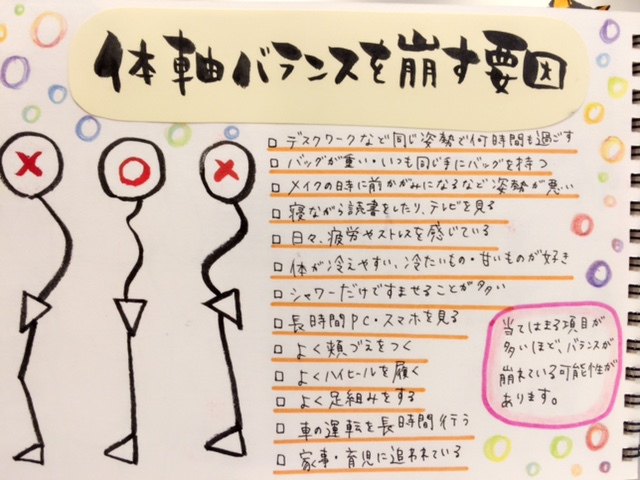 体軸バランスを崩す要因
□ デスクワークなど同じ姿勢で何時間も過ごす
□ バッグが重い・いつも同じ手にバッグを持つ
□ メイクの時に前かがみになるなど姿勢が悪い
□ 寝ながら読書をしたり、テレビを見る
□ 日々、疲労やストレスを感じている
□ 体が冷えやすい、冷たいもの・甘いものが好き
□ シャワーだけですませることが多い
□ 長時間PC・スマホを見る
□ よく頬づえをつく
□ よくハイヒールを履く
□ よく足組みをする
□ 車の運転を長時間行う
□ 家事・育児に追われている
当てはまる項目が
多いほど、バランスが
崩れている可能性が
あります。